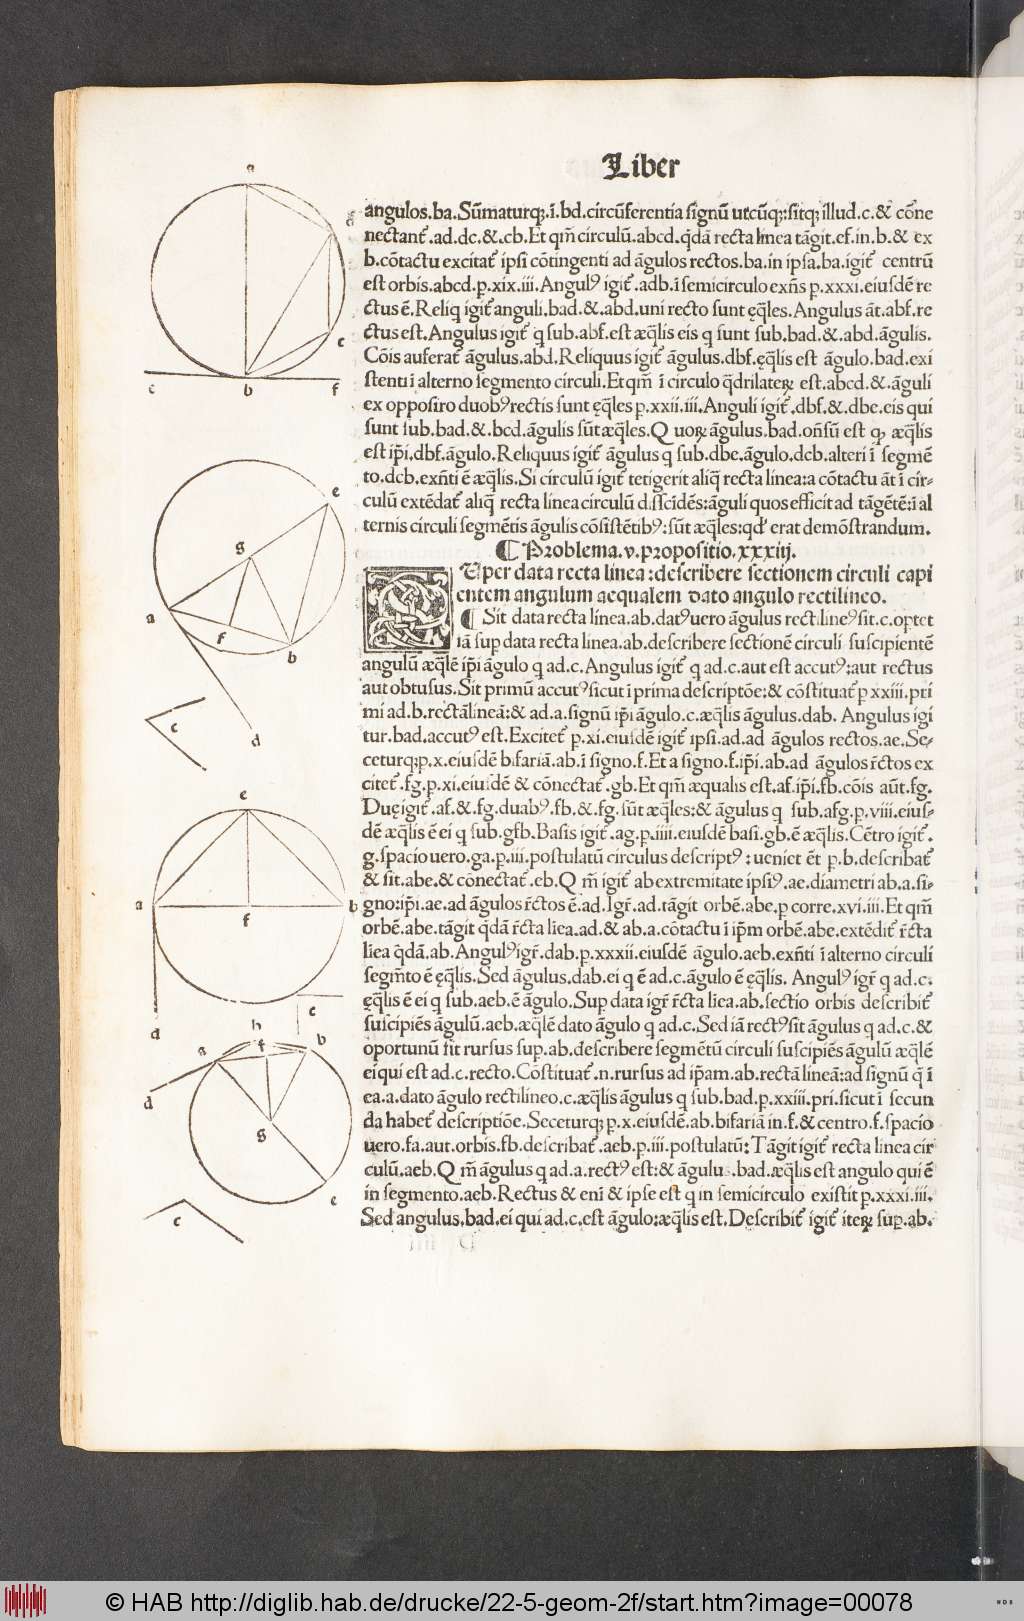 Liber
angulos.ba.Sūmaturqʒ.ī.bd.circūferentia signū utcūqʒ:sitqʒ illud.c.& cōne
nectant᷑.ad.dc.&.cb.Et qm̄ circulū.abcd.q̄dā recta linea tāgit.ef.in.b.& ex
b.cōtactu excitat᷑ ipsi cōtingenti ad āgulos rectos.ba.in ipsa.ba.igit᷑ centrū
est orbis.abcd.p.xix.iii.Angulꝰ igit᷑.adb.ī semicirculo exñs p.xxxi.eiusdē re
ctus ē.Reliq igit᷑ anguli.bad.&.abd.uni recto sunt ęq̄les.Angulus āt.abf.re
ctus est.Angulus igit᷑ q sub.abf.est æq̄lis eis q sunt sub.bad.&.abd.āgulis.
Cōis auferat᷑ āgulus.abd.Reliquus igit᷑ āgulus.dbf.ęq̄lis est āgulo.bad.exi
stenti ī alterno segmento circuli.Et qm̄ ī circulo q̄drilaterꝝ est.abcd.&.āguli
ex opposito duobꝰ rectis sunt ęq̄les p.xxii.iii.Anguli igit᷑.dbf.&.dbe.eis qui
sunt sub.bad.&.bcd.āgulis sūt æq̄les.Q uoꝝ āgulus.bad.onsū est qꝫ æq̄lis
est ip̄i.dbf.āgulo.Reliquus igit᷑ āgulus q sub.dbe.āgulo.dcb.alteri ī segmē
to.dcb.exn̄ti ē æq̄lis.Si circulū igit᷑ tetigerit aliq̄ recta linea:a cōtactu āt ī cir-
culū extēdat᷑ aliq̄ recta linea circulū disscidēs:āguli quos efficit ad tāgētē:ī al
ternis circuli segmētis āgulis cōsistētibꝰ:sūt æq̄les:qd' erat demōstrandum.
¶ Problema.v.propositio.xxxiij.
Uper data recta linea:describere sectionem circuli capi
entem angulum aequalem dato angulo rectilineo.
¶ Sit data recta linea.ab.datꝰ uero āgulus rect.lineꝰ sit.c.optet
iā sup data recta linea.ab.describere sectionē circuli suscipientē
angulū æq̄lē ip̄i āgulo q ad.c.Angulus igit᷑ q ad.c.aut est accutꝰ:aut rectus
aut obtusus.Sit primū accutꝰ sicut ī prima descriptōe:& cōstituat᷑ p xxiii.pri
mi ad.b.rectā lineā:& ad.a.signū ip̄i āgulo.c.æq̄lis āgulus.dab. Angulus igi
tur.bad.accutꝰ est.Excitet᷑ p.xi.eiusdē igit᷑ ipsi.ad.ad āgulos rectos.ae.Se-
ceturqʒ p.x.eiusdē bifariā.ab.ī signo.f.Et a signo.f.ip̄i.ab.ad āgulos r̄ctos ex
citet᷑.fg.p.xi.eiusdē & cōnectat᷑.gb.Et qm̄ æqualis est.af.ip̄i.fb.cōis aūt.fg.
Duę igit᷑.af.&.fg.duabꝰ.fb.&.fg.sūt æq̄les:& āgulus q sub.afg.p.viii.eius-
dē æq̄lis ē ei q sub.gfb.Basis igit᷑.ag.p.iiii.eiusdē basi.gb.ē æq̄lis.Cētro igit᷑.
g.spacio uero.ga.p.iii.postulatū circulus descriptꝰ:ueniet ēt p.b.describat᷑
& sit.abe.& cōnectat᷑.eb.Q m̄ igit᷑ ab extremitate ipsiꝰ.ae.diametri ab.a.si-
gno:ip̄i.ae.ad āgulos r̄ctos ē.ad.Igr̄.ad.tāgit orbē.abe.p corre.xvi.iii.Et qm̄
orbē.abe.tāgit q̄dā r̄cta līea.ad.& ab.a.cōtactu ī ip̄m orbē.abe.extēdit᷑ r̄cta
līea q̄dā.ab.Angulꝰ igr̄.dab.p.xxxii.eiusdē āgulo.aeb.exn̄ti ī alterno circuli
segm̄to ē ęq̄lis.Sed āgulus.dab.ei q ē ad.c.āgulo ē ęq̄lis. Angulꝰ igr̄ q ad.c.
ęq̄lis ē ei q sub.aeb.ē āgulo.Sup data igr̄ r̄cta līea.ab.sectio orbis describit᷑
suscipiēs āgulū.aeb.æq̄lē dato āgulo q ad.c.Sed iā rectꝰ sit āgulus q ad.c.&
oportunū sit rursus sup.ab.describere segmētū circuli suscipiēs āgulū æq̄lē
ei qui est ad.c.recto.Cōstituat᷑.n.rursus ad ip̄am.ab.rectā lineā:ad signū q̄ ī
ea.a.dato āgulo rectilineo.c.æq̄lis āgulus q sub.bad.p.xxiii.pri.sicut ī secun
da habet᷑ descriptiōe.Seceturqʒ p.x.eiusdē.ab.bifariā in.f.& centro.f.spacio
uero.fa.aut.orbis.fb.describat᷑.aeb.p.iii.postulatū:Tāgit igit᷑ recta linea cir
culū.aeb.Q m̄ āgulus q ad.a.rectꝰ est:& āgulus.bad.æq̄lis est angulo qui ē
in segmento.aeb.Rectus & eni & ipse est q in semicirculo existit p.xxxi.iii.
Sed angulus.bad.ei qui ad.c.est āgulo:æq̄lis est.Describit᷑ igit᷑ iterꝝ sup.ab.
a
c
e
b
f
e
g
a
f
b
c
d
e
a
f
b
d
c
h
a
f
b
d
g
e
c
© HAB http://diglib.hab.de/drucke/22-5-geom-2f/start.htm?image=00078